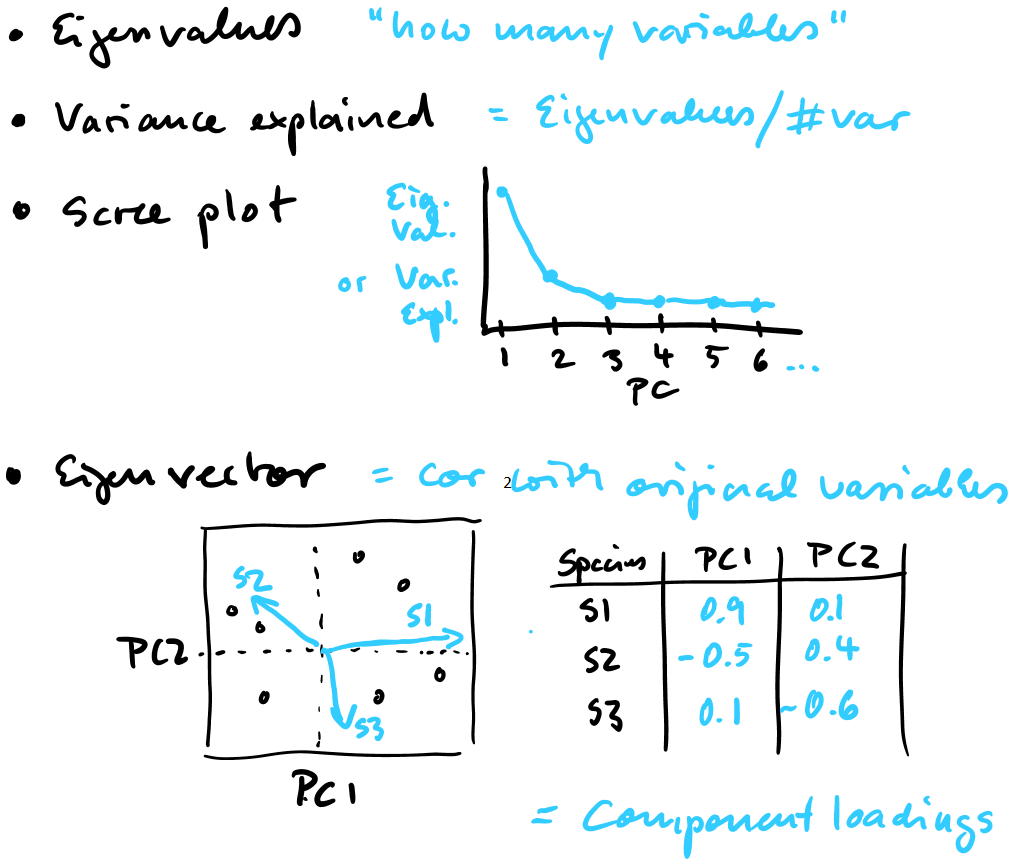 • Eigenvalues "how many variables"
• Variance explained = Eigenvalues/#var
• Scree plot
Eig.
Val.
or Var.
Expl.
1 2 3 4 5 6 ...
PC
• Eigenvector = cor with original variables
2
S2
S1
PC2
S3
PC1
Species PC1 PC2
S1 0.9 0.1
S2 -0.5 0.4
S3 0.1 -0.6
= Component loadings